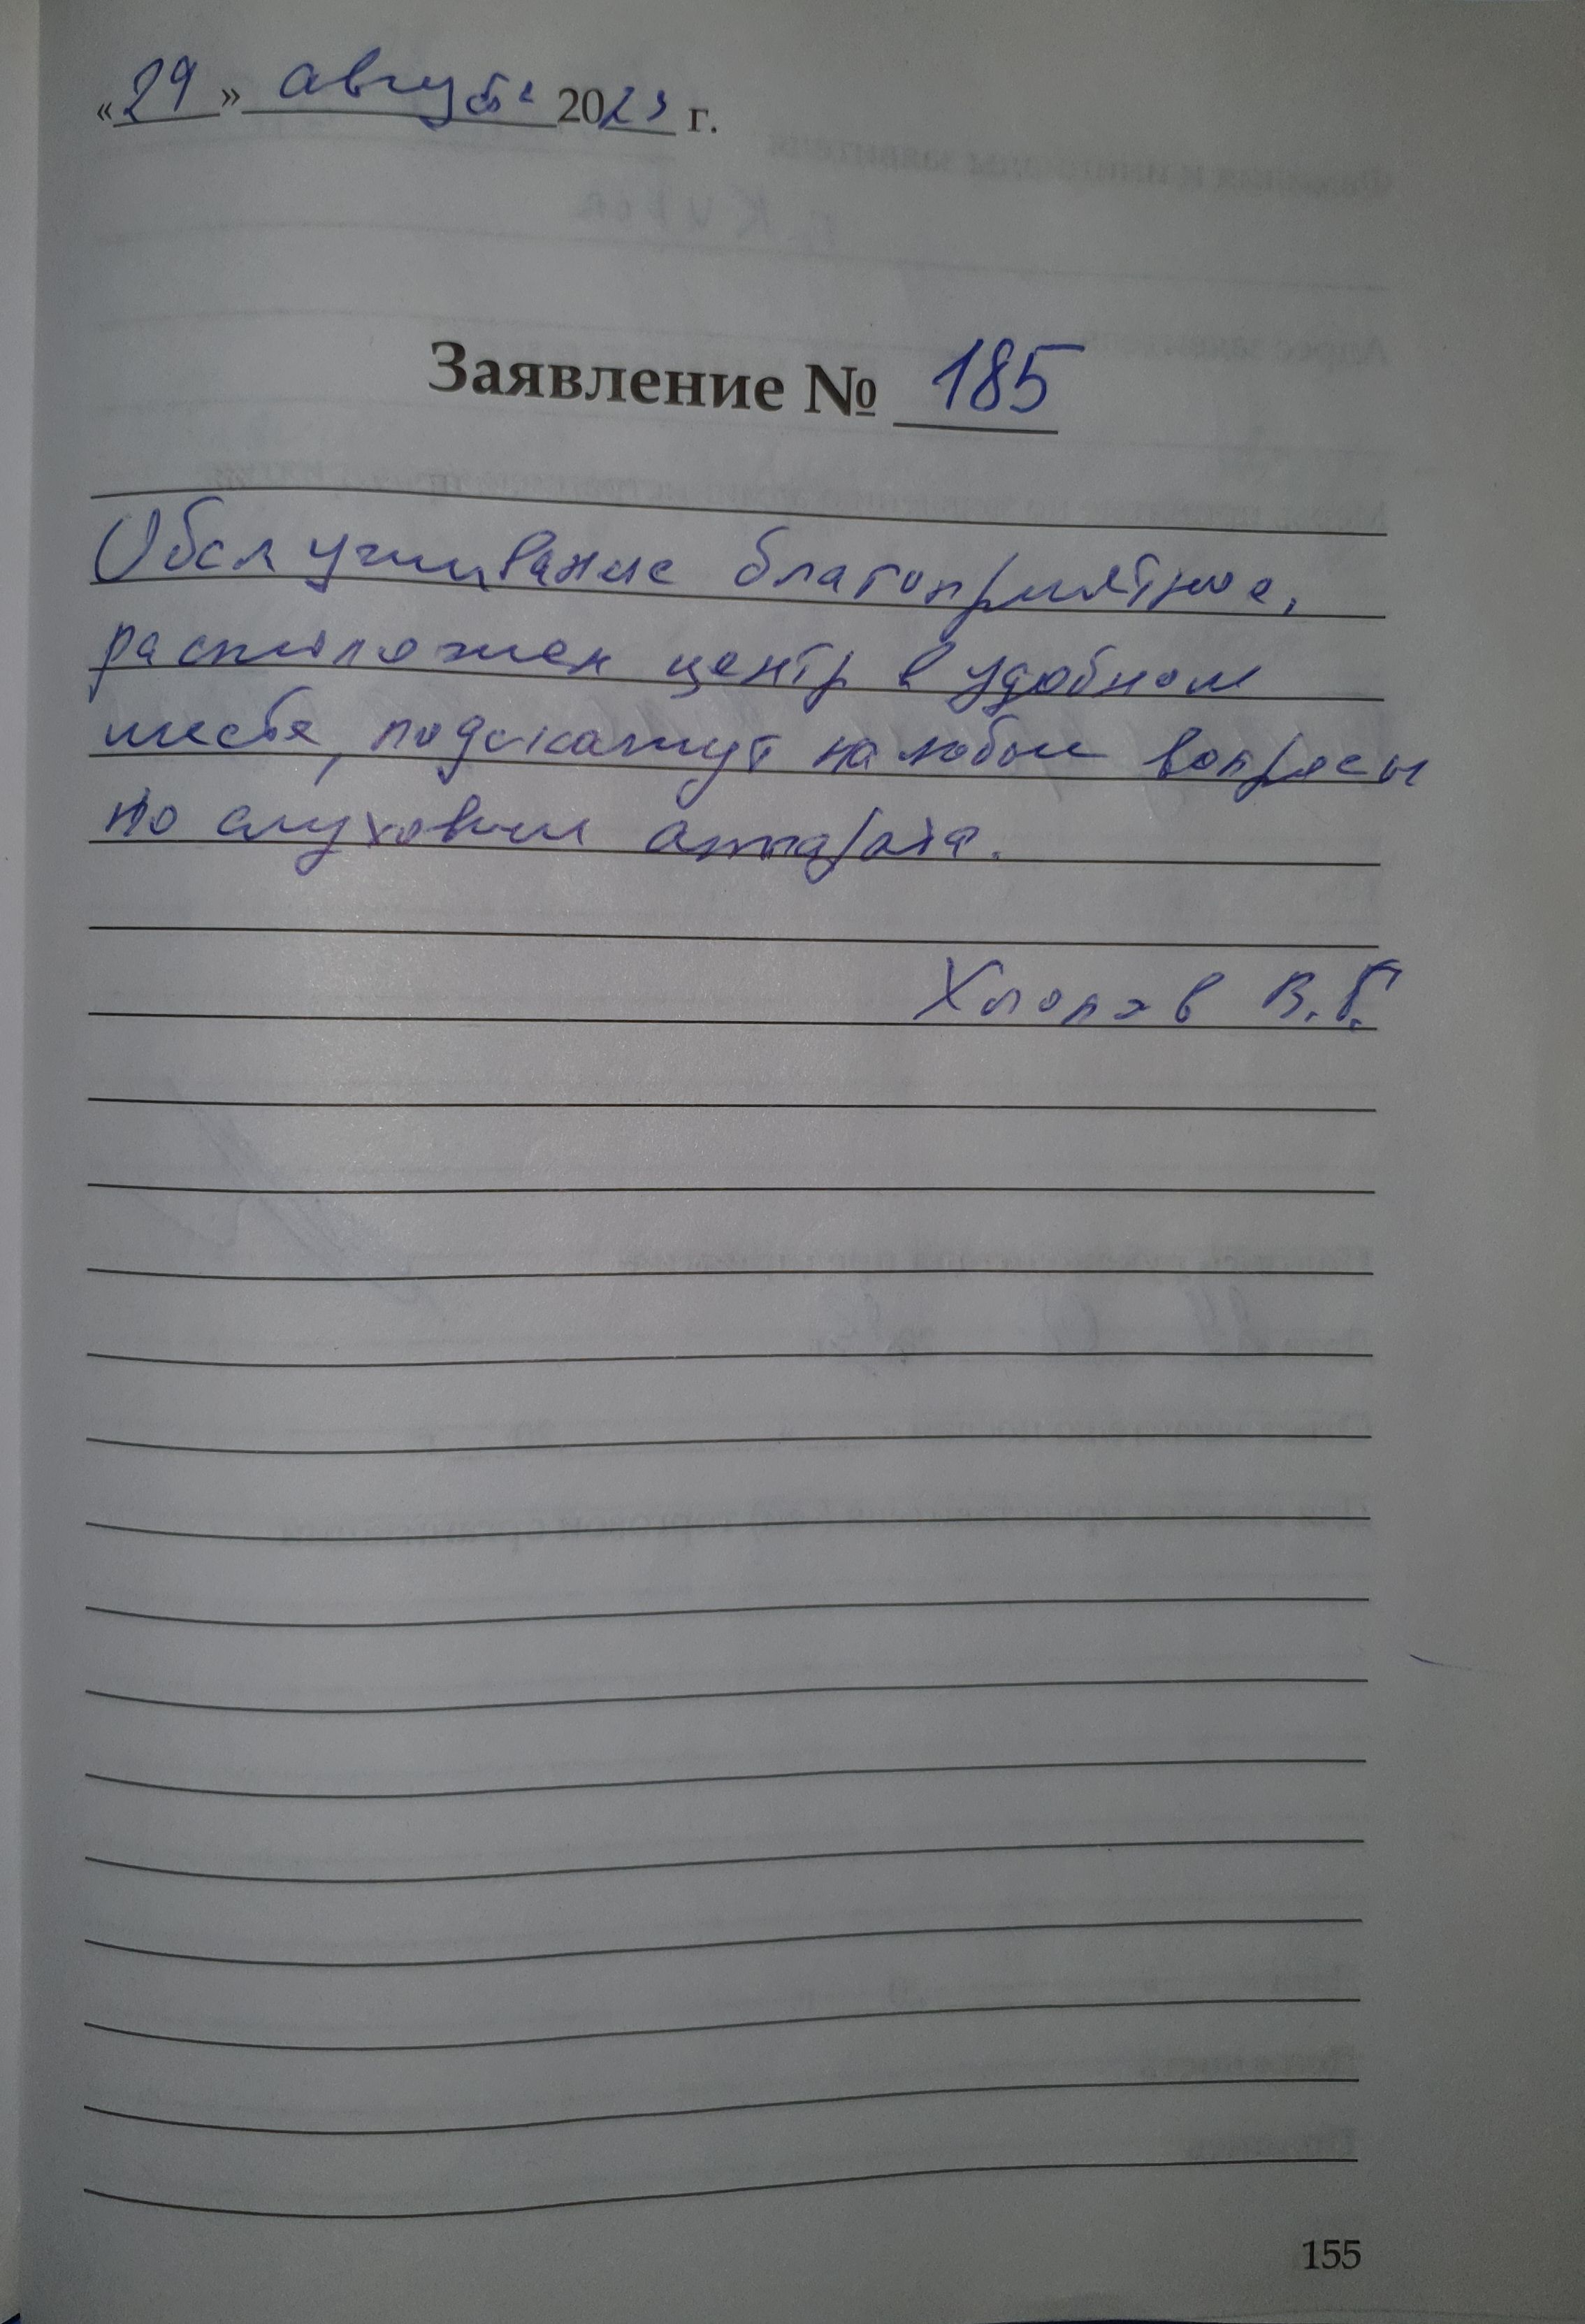 «29» августа 2023 г.
Заявление № 185
Обслуживание благоприятное,
расположен центр в удобном
месте, подскажут на любые вопросы
по слуховым аппарата.
Хлопов В.Г.
155